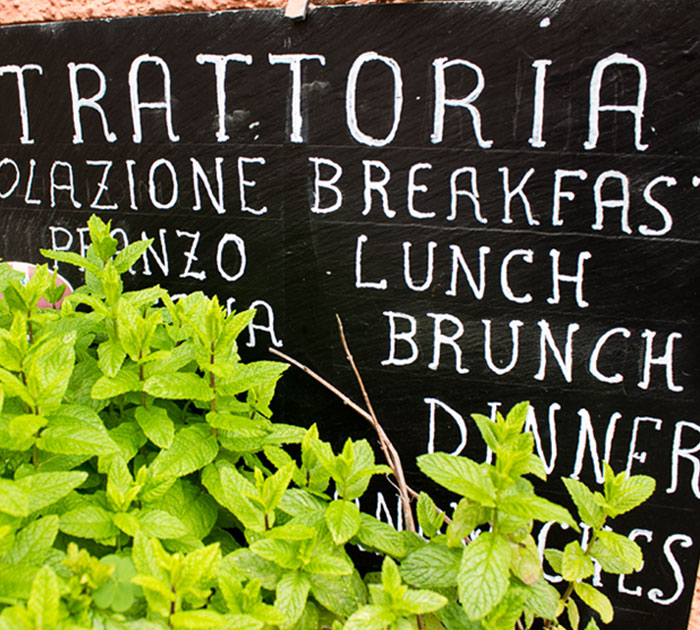 TRATTORIA
OLAZIONE BREAKFAST
PRANZO LUNCH
BRUNCH
DINNER